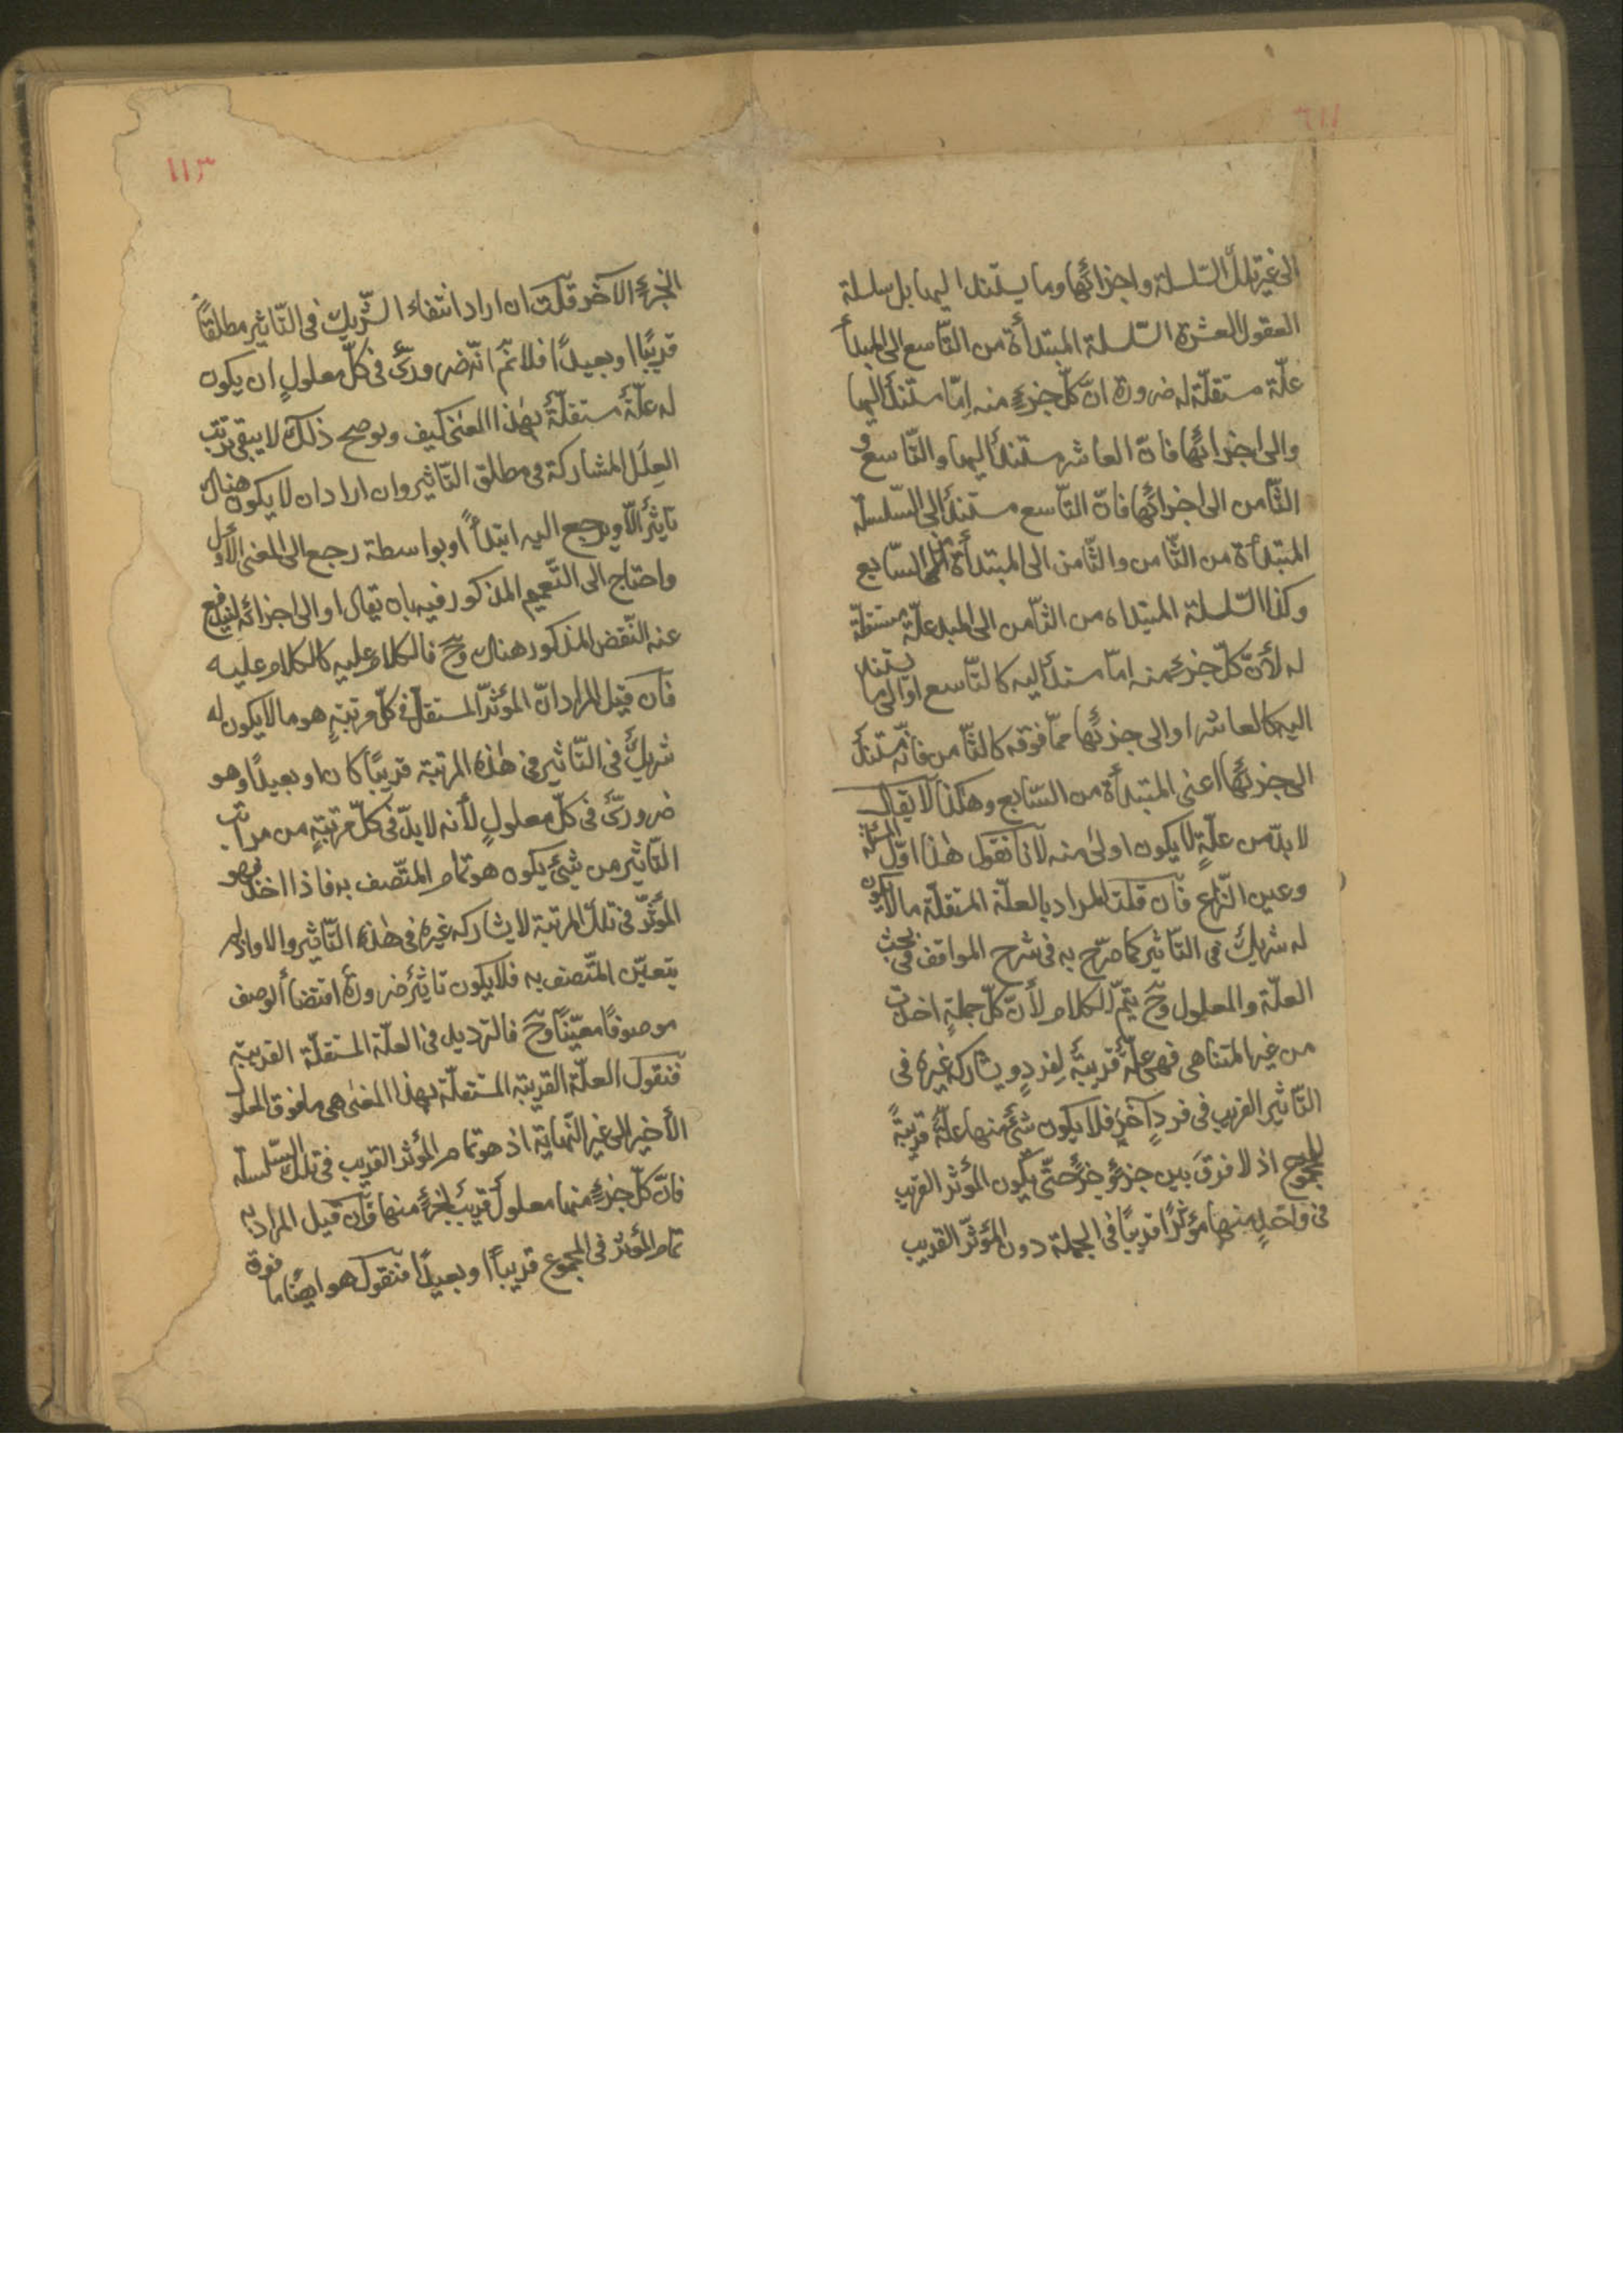 الى غير تلك السّلسلة واجزائها وما يستند اليها بل سلسلة
العقول العشرة السّلسلة المبتدأة من التّاسع الى المبدأ
علّة مستقلّة له ضرورة انّ كلّ جزءٍ منه إمّا مستندٌ اليها
والى اجزائها فانّ العاشر مستندٌ اليها والتّاسع و
الثّامن الى اجزائها فانّ التّاسع مستندٌ الى السّلسلة
المبتدأة من الثّامن والثّامن الى المبتدأة من السّابع
وكذا السّلسلة المبتداه من الثّامن الى المبدء علّة مستقلّة
له لأنّ كلّ جزءٍ منه امّا مستندٌ اليه كالتّاسع او الى ما يستند
اليه كالعاشر او الى جزئها ممّا فوقه كالثّامن فانّه مستندٌ
الى جزئها اعنى المبتدأة من السّابع وهكذا لا يقال
لا بدّ من علّةٍ لا يكون اولى منه لانّا نقول هذا اوّل المسئلة
وعين النّزاع فان قلت المراد بالعلّة المستقلّة ما لا يكون
له شريكٌ فى التّاثير كما صرّح به فى شرح المواقف فى بحث
العلّة والمعلول وحَ يتمّ الكلام لأنّ كلّ جملةٍ اخذت
من غير المتناهى فهى علّةٌ قريبةٌ لفردٍ ويشاركه غيره فى
التّاثير القريب فى فردٍ آخر فلا يكون شئٌ منها علّةً قريبةً
للمجموع اذ لا فرق بين جزءٍ وجزءٍ حتّى يكون المؤثّر القريب
فى واحدٍ منها مؤثّرًا قريبًا فى الجملة دون المؤثّر القريب
١١٣
الجزء الآخر قلت ان اراد انتفاء الشّريك فى التّاثير مطلقًا
قريبًا او بعيدًا فلا نمَ انّه ضرورىٌّ فى كلّ معلولٍ ان يكون
له علّةٌ مستقلّةٌ بهذا المعنى كيف ويوضح ذلك لا يبقى ترتب
العلل المشاركة فى مطلق التّاثير وان اراد ان لا يكون هناك
تاثيرٌ الّا ويرجع اليه ابتداءً او بواسطة رجع الى المعنى الأوّل
واحتاج الى التّعميم المذكور فيه بان يقال او الى اجزائه ليندفع
عنه النّقض المذكور هناك وحَ فالكلام عليه كالكلام عليه
فان قيل المراد انّ المؤثّر المستقلّ فى كلّ مرتبةٍ هو ما لا يكون له
شريكٌ فى التّاثير فى هذه المرتبة قريبًا كان او بعيدًا وهو
ضرورىٌّ فى كلّ معلولٍ لأنه لا بدّ فى كلّ مرتبةٍ من مراتب
التّاثير من شئٍ يكون هو تمام المتّصف به فاذا اخذ فهو
المؤثّر فى تلك المرتبة لا يشاركه غيره فى هذه التّاثير والا واذ لم
يتعيّن المتّصف به فلا يكون تاثيرٌ ضرورة اقتضاء الوصف
موصوفًا معيّنًا وحَ فالترديد فى العلّة المستقلّة القريبة
فنقول العلّة القريبة المستقلّة بهذا المعنى هى ما فوق المعلول
الأخير الى غير النّهاية اذ هو تمام المؤثر القريب فى تلك السّلسلة
فانّ كلّ جزءٍ منها معلولٌ قريبٌ لجزءٍ منها فان قيل المراد به
تمام المؤثر فى المجموع قريبًا او بعيدًا فنقول هو ايضًا ما فوق